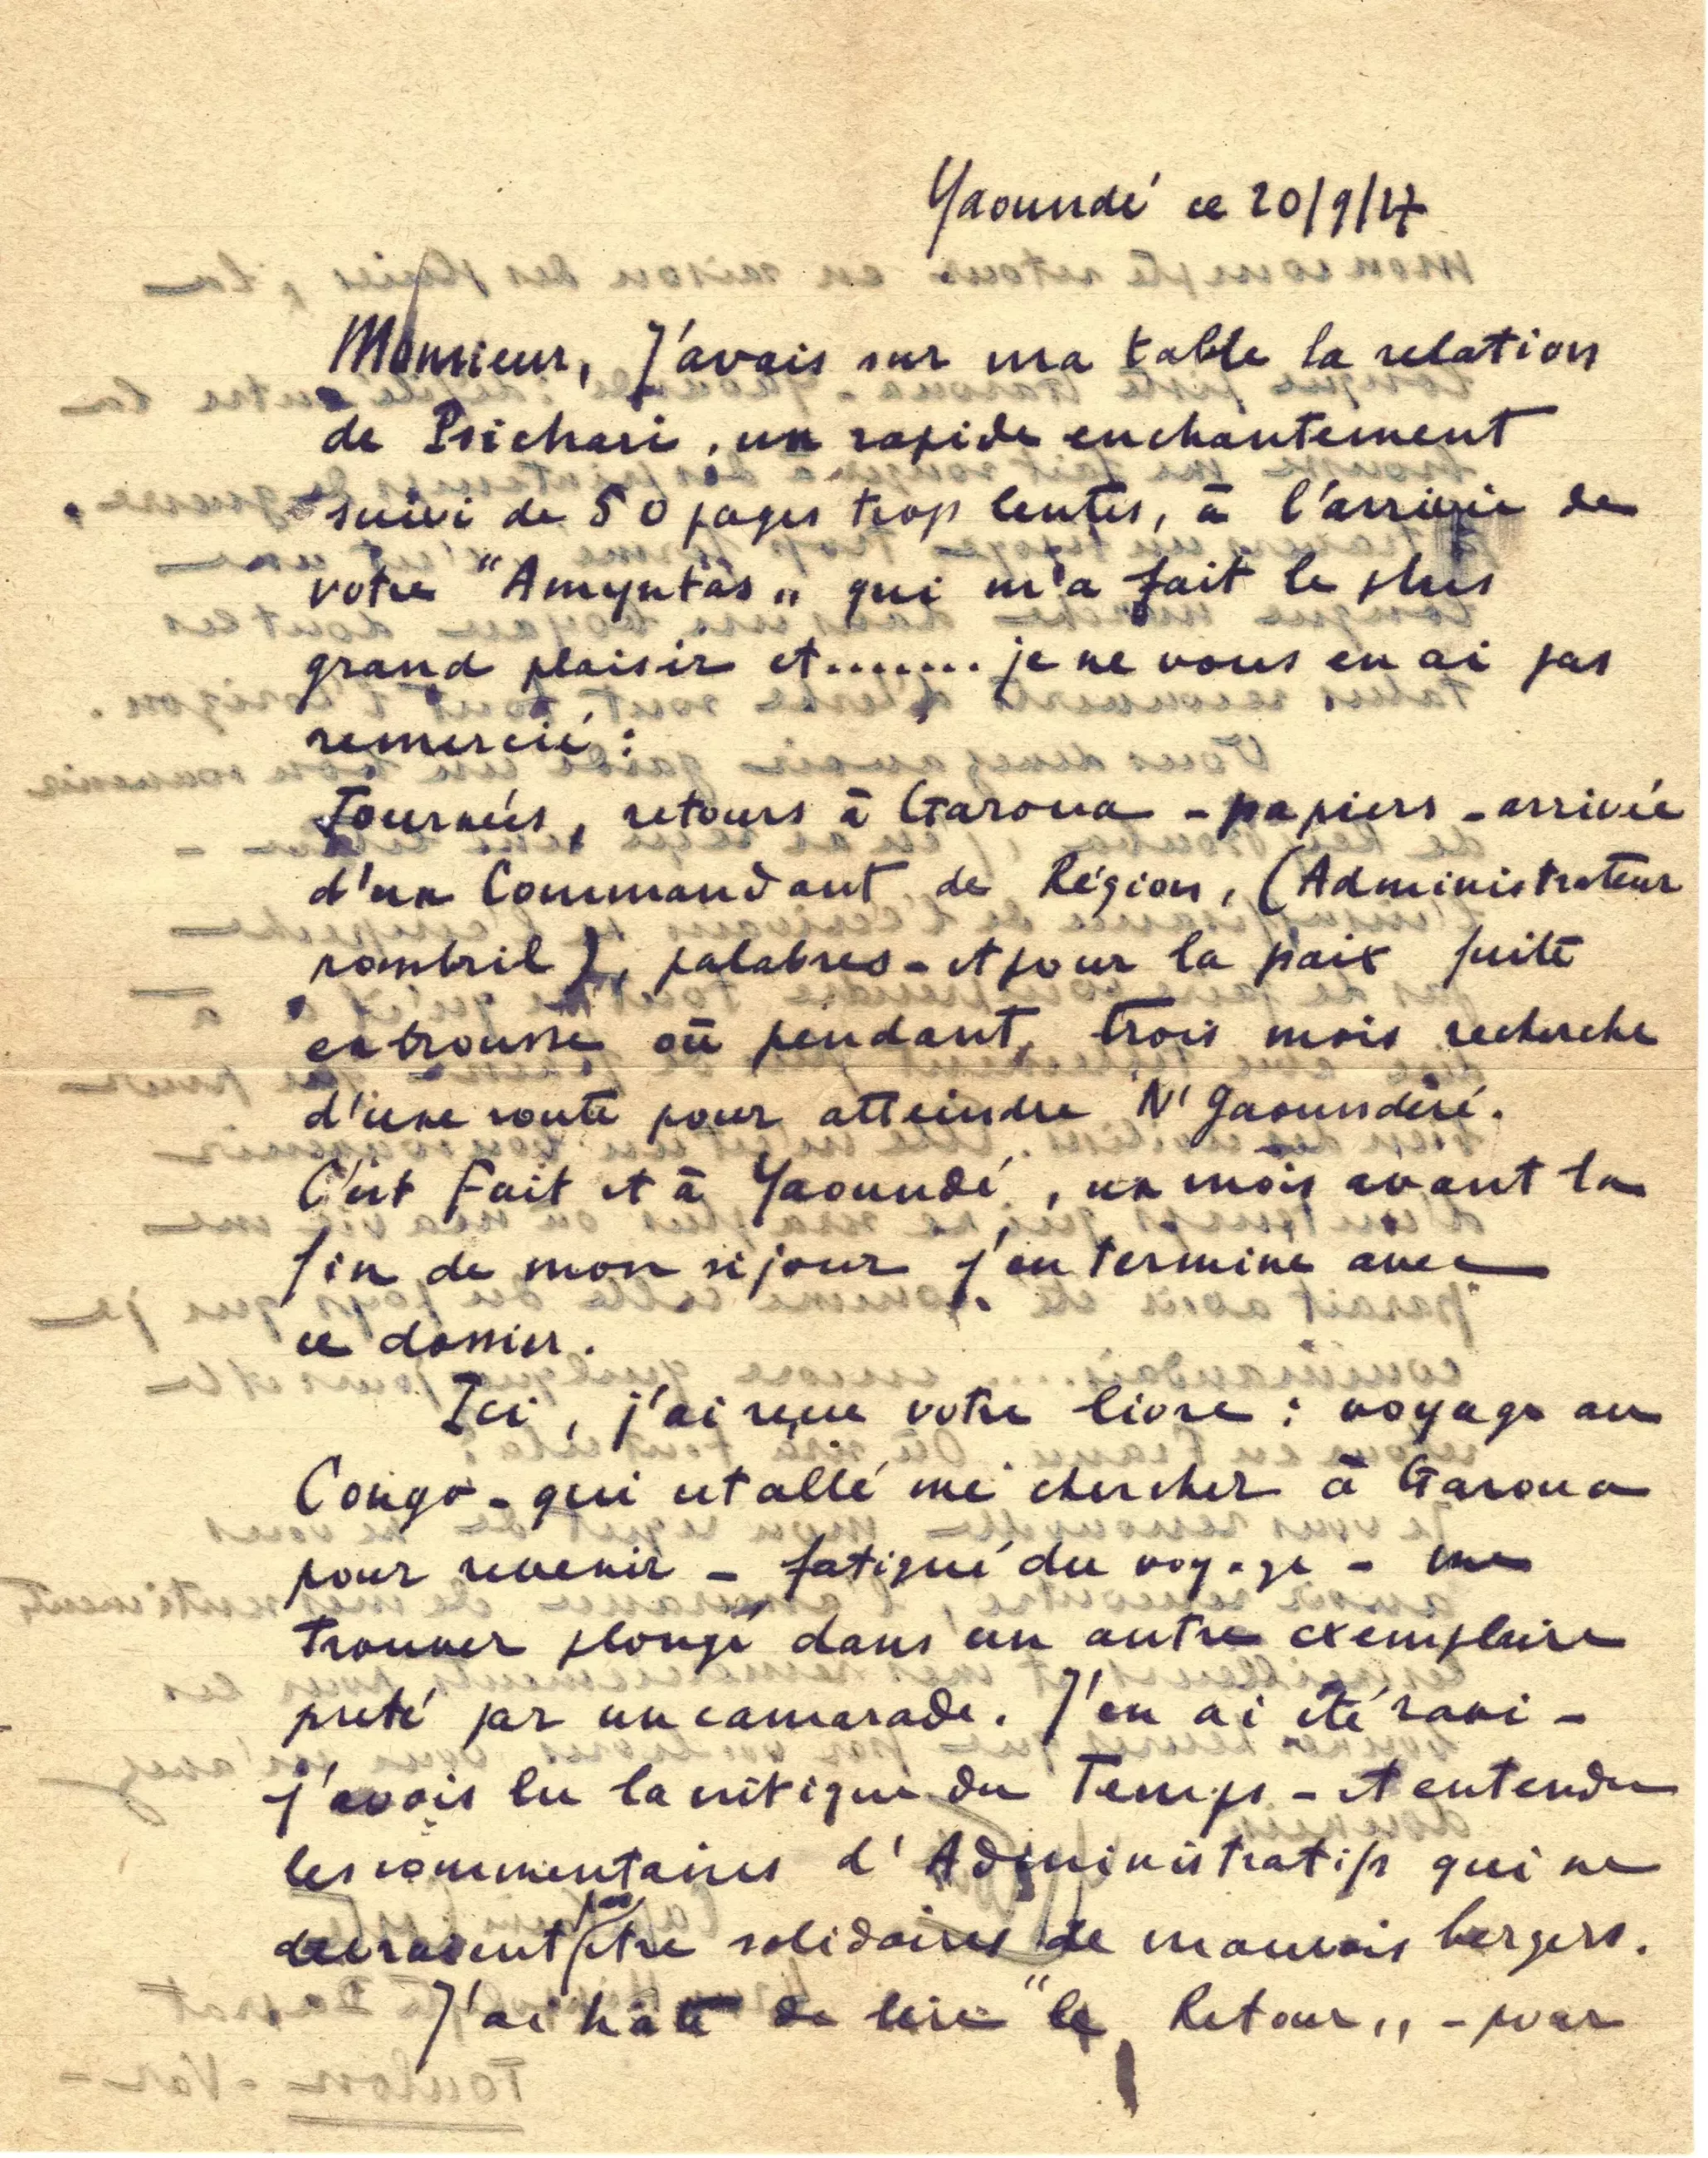 Yaoundé ce 20/9/27
Monsieur, J'avais sur ma table la relation
de Psichari, un rapide enchantement
suivi de 50 pages trop lentes, à l'arrivée de
votre "Amyntas„ qui m'a fait le plus
grand plaisir et....... je ne vous en ai pas
remercié :
Tournées, retours à Garoua - papiers - arrivée
d'un Commandant de Région, (Administrateur
nombril), palabres - et pour la paix fuite
en brousse où pendant, trois mois recherche
d'une route pour atteindre N'Gaoundéré.
C'est fait et à Yaoundé, un mois avant la
fin de mon séjour j'en termine avec
ce dossier.
Ici, j'ai reçu votre livre : voyage au
Congo - qui est allé me chercher à Garoua
pour revenir - fatigué du voyage - me
trouver plongé dans un autre exemplaire
preté par un camarade. J'en ai été ravi -
j'avais lu la critique du Temps - et entendu
les commentaires d'Administratifs qui ne
devraient pas être solidaires de mauvais bergers.
J'ai hâte de lire "le Retour„ - pour